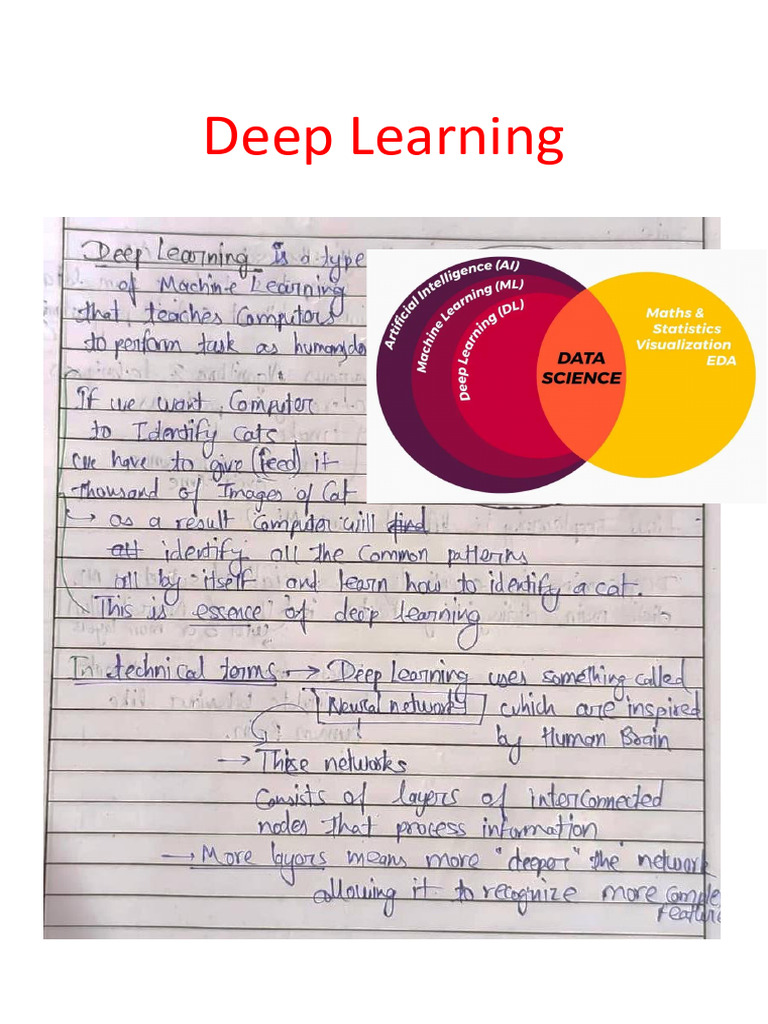 Deep Learning
Deep Learning is a type
of Machine Learning
that teaches Computers
to perform task as human do
Artificial Intelligence (AI)
Machine Learning (ML)
Deep Learning (DL)
DATA
SCIENCE
Maths &
Statistics
Visualization
EDA
If we want Computer
to Identify cats
we have to give (feed) it
thousand of Images of Cat
→ as a result Computer will find
all identify all the Common patterns
all by itself and learn how to identify a cat.
This is essence of deep learning
In technical terms → Deep Learning uses something called
Neural networks which are inspired
by Human Brain
→ These networks
Consists of layers of interconnected
nodes that process information
→ More layers means more "deeper" the network
allowing it to recognize more comple
feature